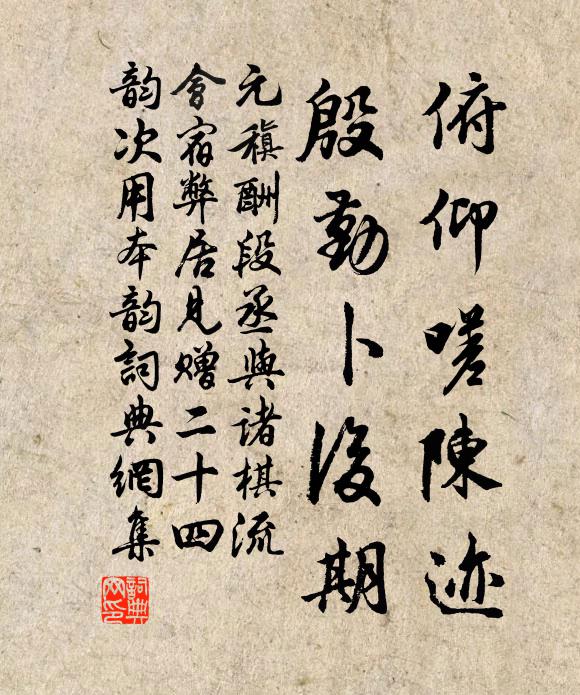 俯仰嗟陳迹
殷勤卜後期
元稹酬段丞與諸棋流
會宿弊居見贈二十四
韵次用本韵詞典網集
詞典網印